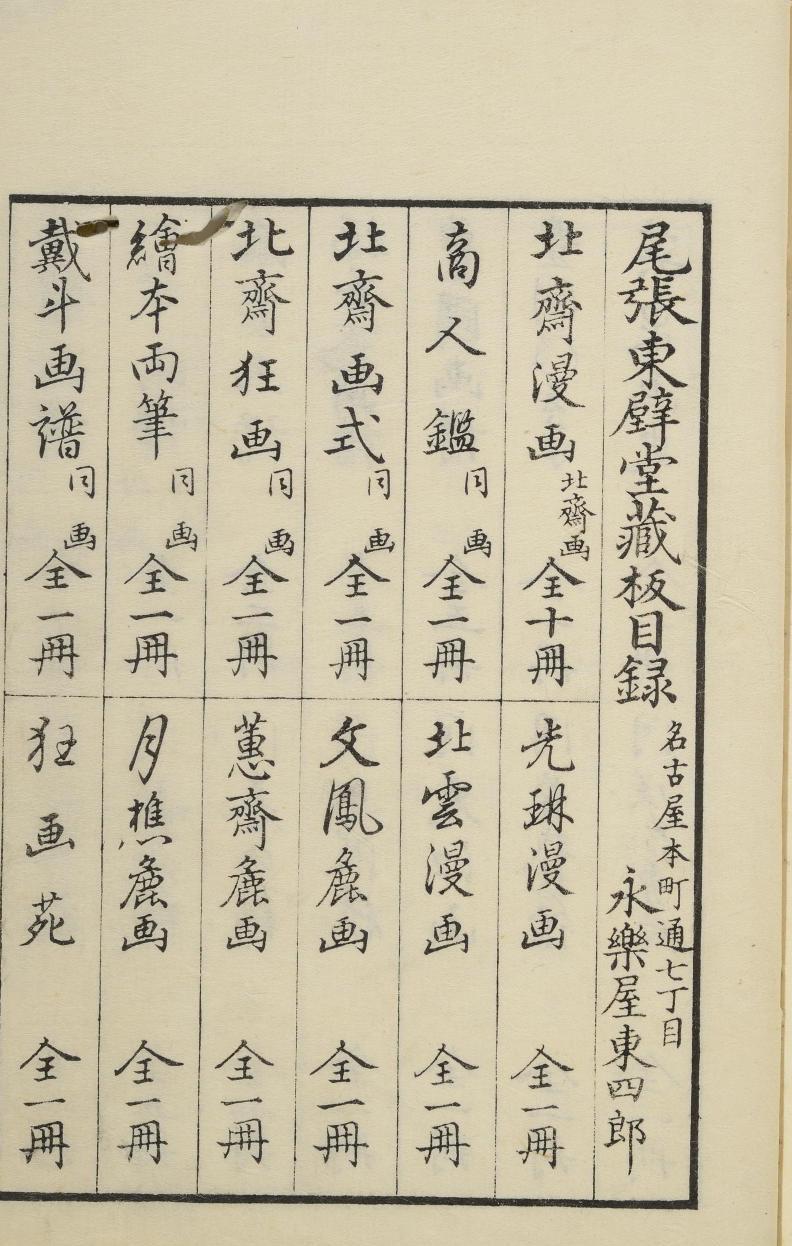 尾張東壁堂藏板目録
名古屋本町通七丁目
永樂屋東四郎
北齋漫画 北齋画 全十冊
商人鑑 同画 全一冊
北齋画式 同画 全一冊
北齋狂画 同画 全一冊
繪本両筆 同画 全一冊
戴斗画譜 同画 全一冊
光琳漫画 全一冊
北雲漫画 全一冊
文鳳麁画 全一冊
蕙齋麁画 全一冊
月樵麁画 全一冊
狂画苑 全一冊